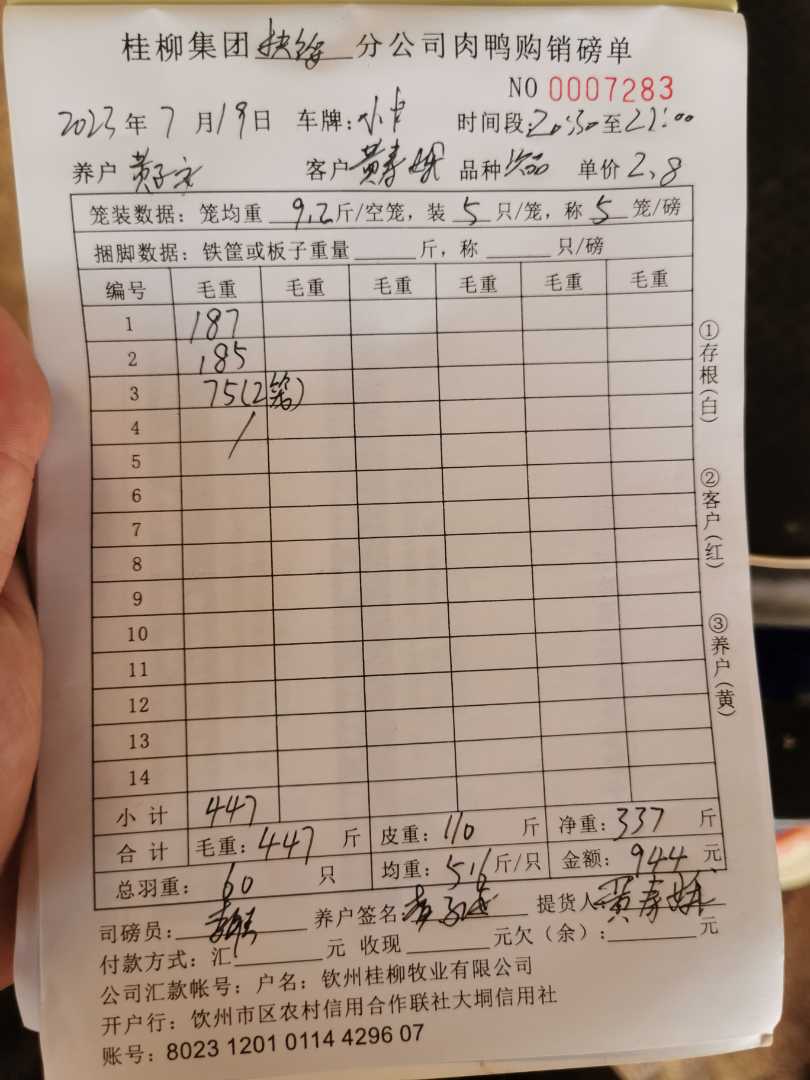 桂柳集团 分公司肉鸭购销磅单
NO 0007283
2023年 7 月 19日 车牌: 小中 时间段: 20:30至22:00
养户 黄子文 客户 黄寿娥 品种 次品 单价 2.8
笼装数据: 笼均重 9.2斤/空笼, 装 5 只/笼, 称 5 笼/磅
捆脚数据: 铁筐或板子重量 斤, 称 只/磅
编号 毛重 毛重 毛重 毛重 毛重 毛重
1 187
2 185
3 75(2笼)
4
5
6
7
8
9
10
11
12
13
14
小计 447
合计 毛重: 447 斤 皮重: 110 斤 净重: 337 斤
总羽重: 60 只 均重: 5.6斤/只 金额: 944元
司磅员: 养户签名: 提货人: 黄寿娥
付款方式: 汇 元 收现 元欠(余): 元
公司汇款帐号: 户名: 钦州桂柳牧业有限公司
开户行: 钦州市区农村信用合作联社大垌信用社
账号: 8023 1201 0114 4296 07
①存根(白)
②客户(红)
③养户(黄)